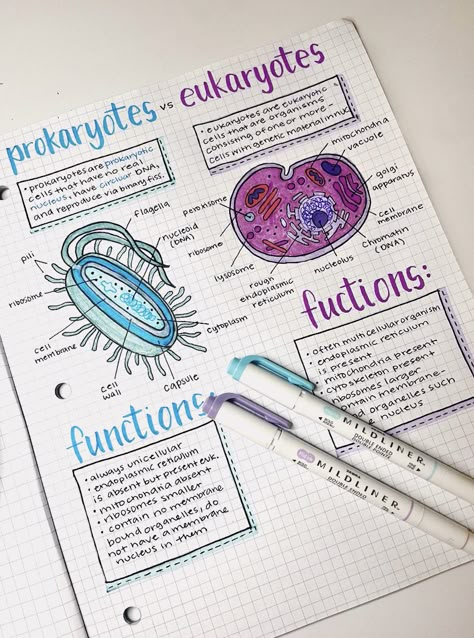 prokaryotes vs eukaryotes
• prokaryotes are prokaryotic
cells that have no real
nucleus, have circular DNA,
and reproduce via binary fiss.
• eukaryotes are eukaryotic
cells that are organisms
consisting of one or more
cells with genetic material in nuc
flagella
nucleoid
(DNA)
pili
ribosome
cell
membrane
cell
wall
capsule
cytoplasm
mitochondria
vacuole
golgi
apparatus
cell
membrane
chromatin
(DNA)
nucleolus
rough
endoplasmic
reticulum
lysosome
ribosome
peroxisome
fuctions:
• often multicellular organism
• endoplasmic reticulum
is present
• mitochondria present
• cytoskeleton present
ribosomes larger
contain membrane-
organelles such
nucleus
functions
• always unicellular
• endoplasmic reticulum
is absent but present euk.
• mitochondria absent
• ribosomes smaller
• contain no membrane
bound organelles, do
not have a membrane
nucleus in them
MILDLINER
DOUBLE ENDED
MILDLINER
DOUBLE ENDED